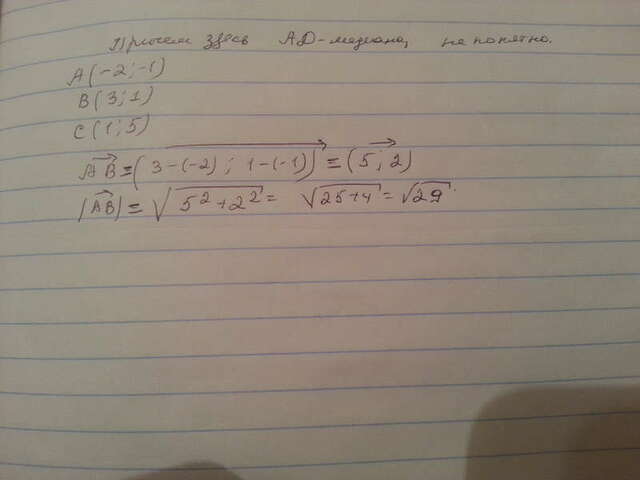 Причем здесь АД-медиана, не понятно.
A(-2;-1)
B(3;1)
C(1;5)
AB=(3-(-2); 1-(-1))=(5;2)
|AB|=√5²+2²= √25+4=√29.